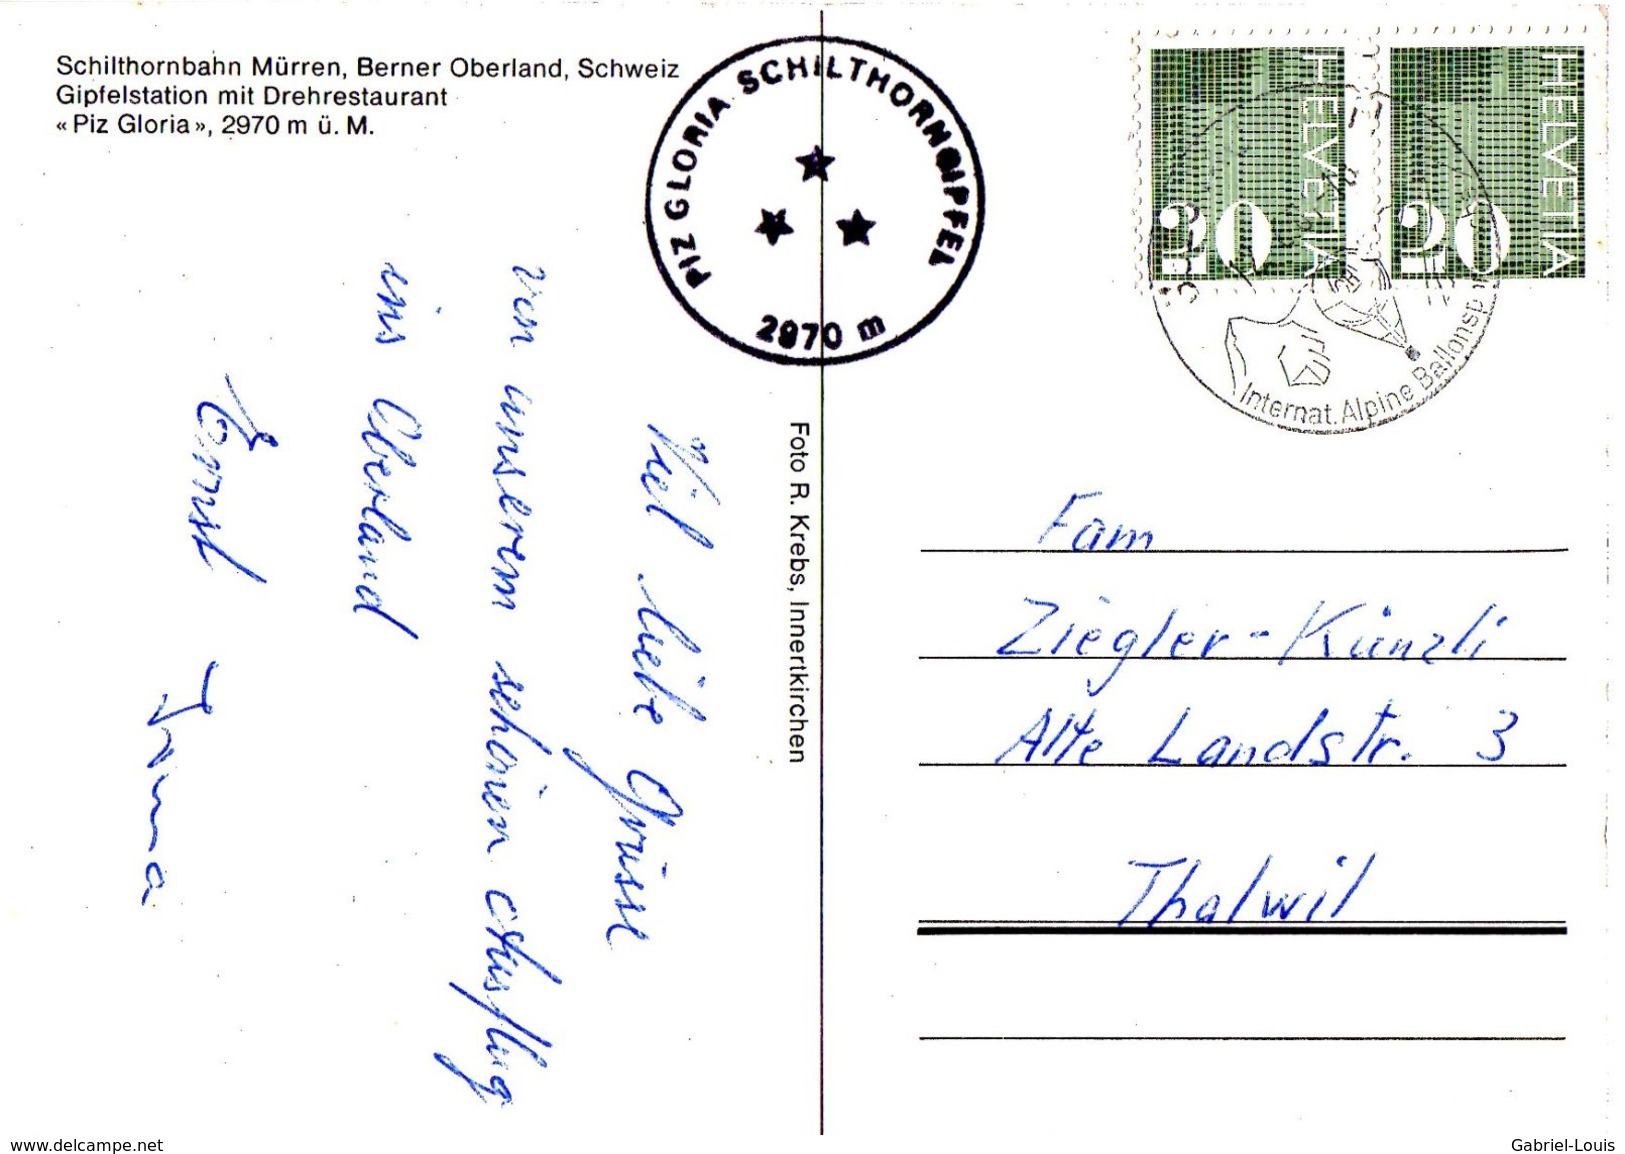 Schilthornbahn Mürren, Berner Oberland, Schweiz
Gipfelstation mit Drehrestaurant
«Piz Gloria», 2970 m ü. M.
PIZ GLORIA SCHILTHORNGIPFEL
2970 m
HELVETIA
20
HELVETIA
20
Internat. Alpine Ballonsp
Viel liebe Grüsse
von unserem schönen Ausflug
ins Oberland
Ernst
Irma
Foto R. Krebs, Innertkirchen
Fam
Ziegler-Künzli
Alte Landstr. 3
Thalwil
www.delcampe.net
Gabriel-Louis